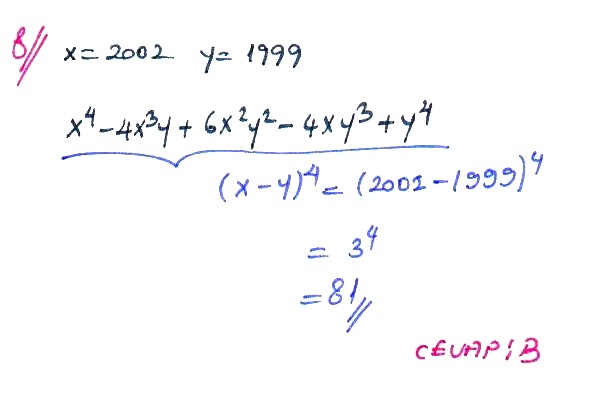 8// x = 2002 y = 1999
x⁴ - 4x³y + 6x²y² - 4xy³ + y⁴
(x - y)⁴ = (2002 - 1999)⁴
= 3⁴
= 81//
CEVAP : B